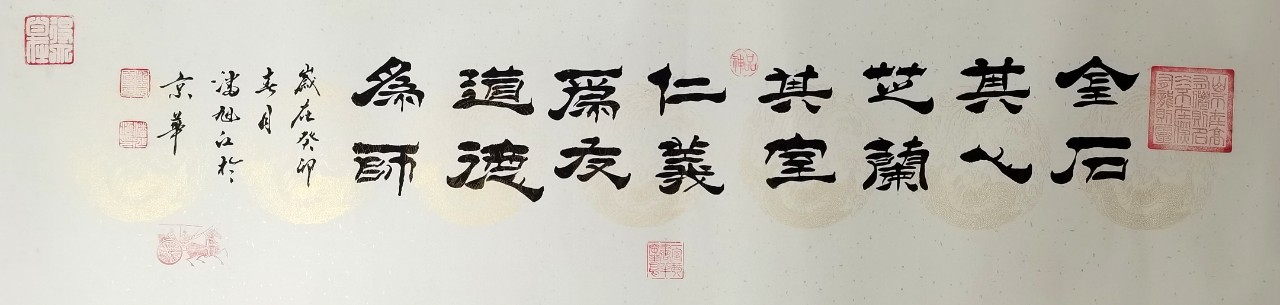 金石
其心
芝蘭
其室
仁義
爲友
道德
為師
歲在癸卯
春月
潘旭江於
京華